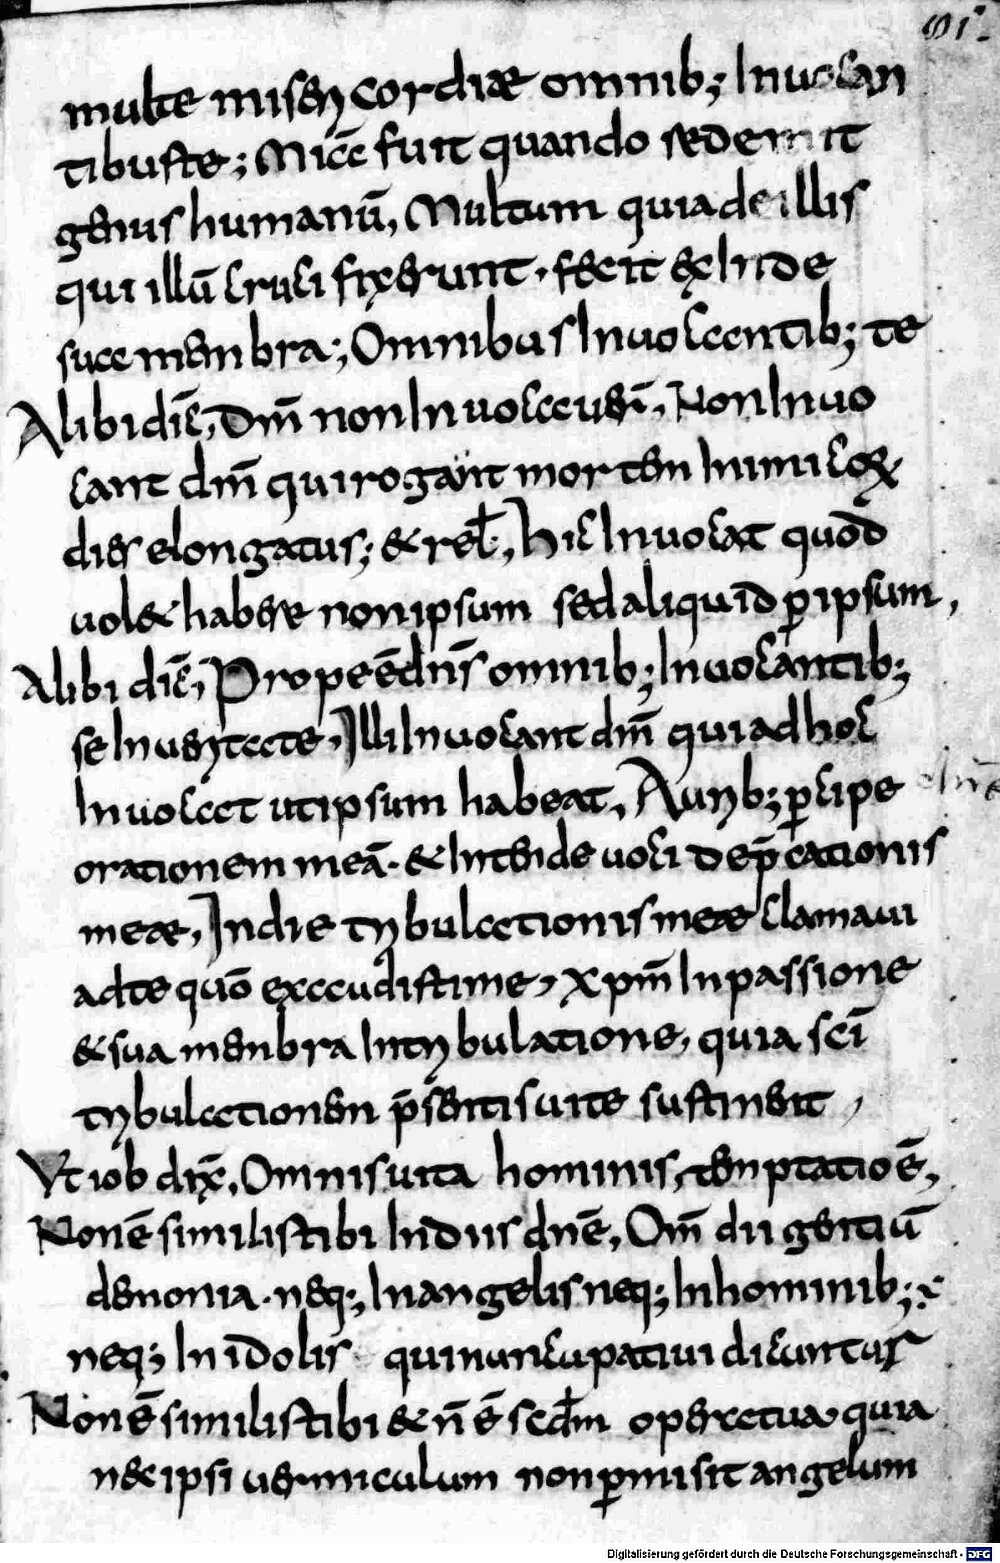 multe misericordiae omnib; Inuocan
tibus te; Micc̄ fuit quando redemit
genus humanū, Multum quia de illis
qui illū crucifixerunt · fecit exinde
sua membra; Omnibus Inuocantib; te
Alibi dic̄, Dm̄ non Inuocauer̄, Non Inuo
cant dm̄ qui rogant mortem Inimicor
dies elongatus; & rel, Hic Inuocat quod
uol& habere non ipsum sed aliquid p ipsum,
Alibi dic̄, Prope ē dn̄s omnib; Inuocantib;
se In ueritate, Illi Inuocant dm̄ qui ad hoc
Inuocat ut ipsum habeat, Aurib; pcipe
orationem meā · & Intende uoci dep̄cationis
meae, In die tribulationis meae clamaui
ad te quō exaudisti me, xpm̄ In passione
& sua membra In tribulatione, quia sc̄i
tribulationem p̄sentis uite sustinent,
Vt iob dix̄, Omnis uita hominis, temptatio ē,
Non ē similis tibi In diis dn̄e, Om̄ dii gentiū
demonia · neq; In angelis neq; In hominib;
neq; In idolis qui nuncupatiui dicuntur
Non ē similis tibi & n̄ ē scdm opera tua quia
nec ipsi uermiculum non pmisit angelum
Digitalisierung gefördert durch die Deutsche Forschungsgemeinschaft - DFG